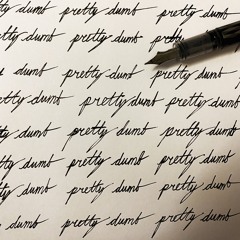 pretty dumb pretty dumb
dumb pretty dumb pretty
dumb pretty dumb
pretty dumb pretty dumb pretty dumb
dumb pretty dumb pretty dumb
pretty dumb pretty dumb pretty dumb
pretty dumb pretty dumb pretty dumb
pretty dumb pretty dumb pretty dumb
dumb pretty dumb pretty dumb